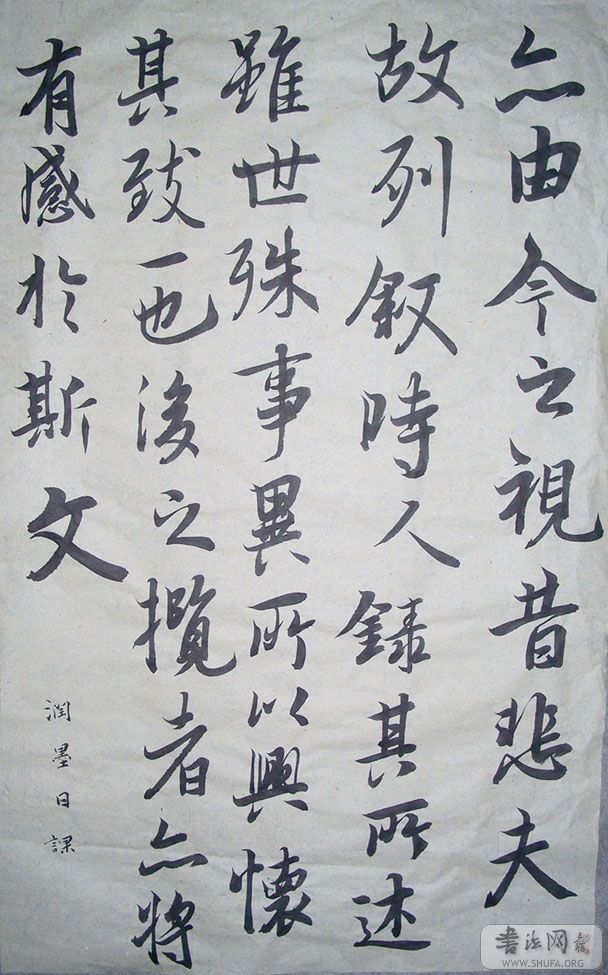 亦由今之視昔悲夫
故列敘時人錄其所述
雖世殊事異所以興懷
其致一也後之攬者亦將
有感於斯文
潤墨日課
书法网
WWW.SHUFA.ORG